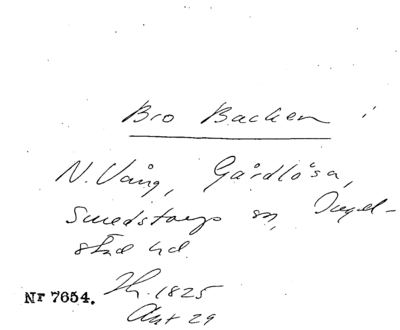 Bro Backen i
N. Vång, Gårdlösa,
Smedstorps sn, Ingel-
stad hd.
Nr 7654. Jh. 1825
Akt 29